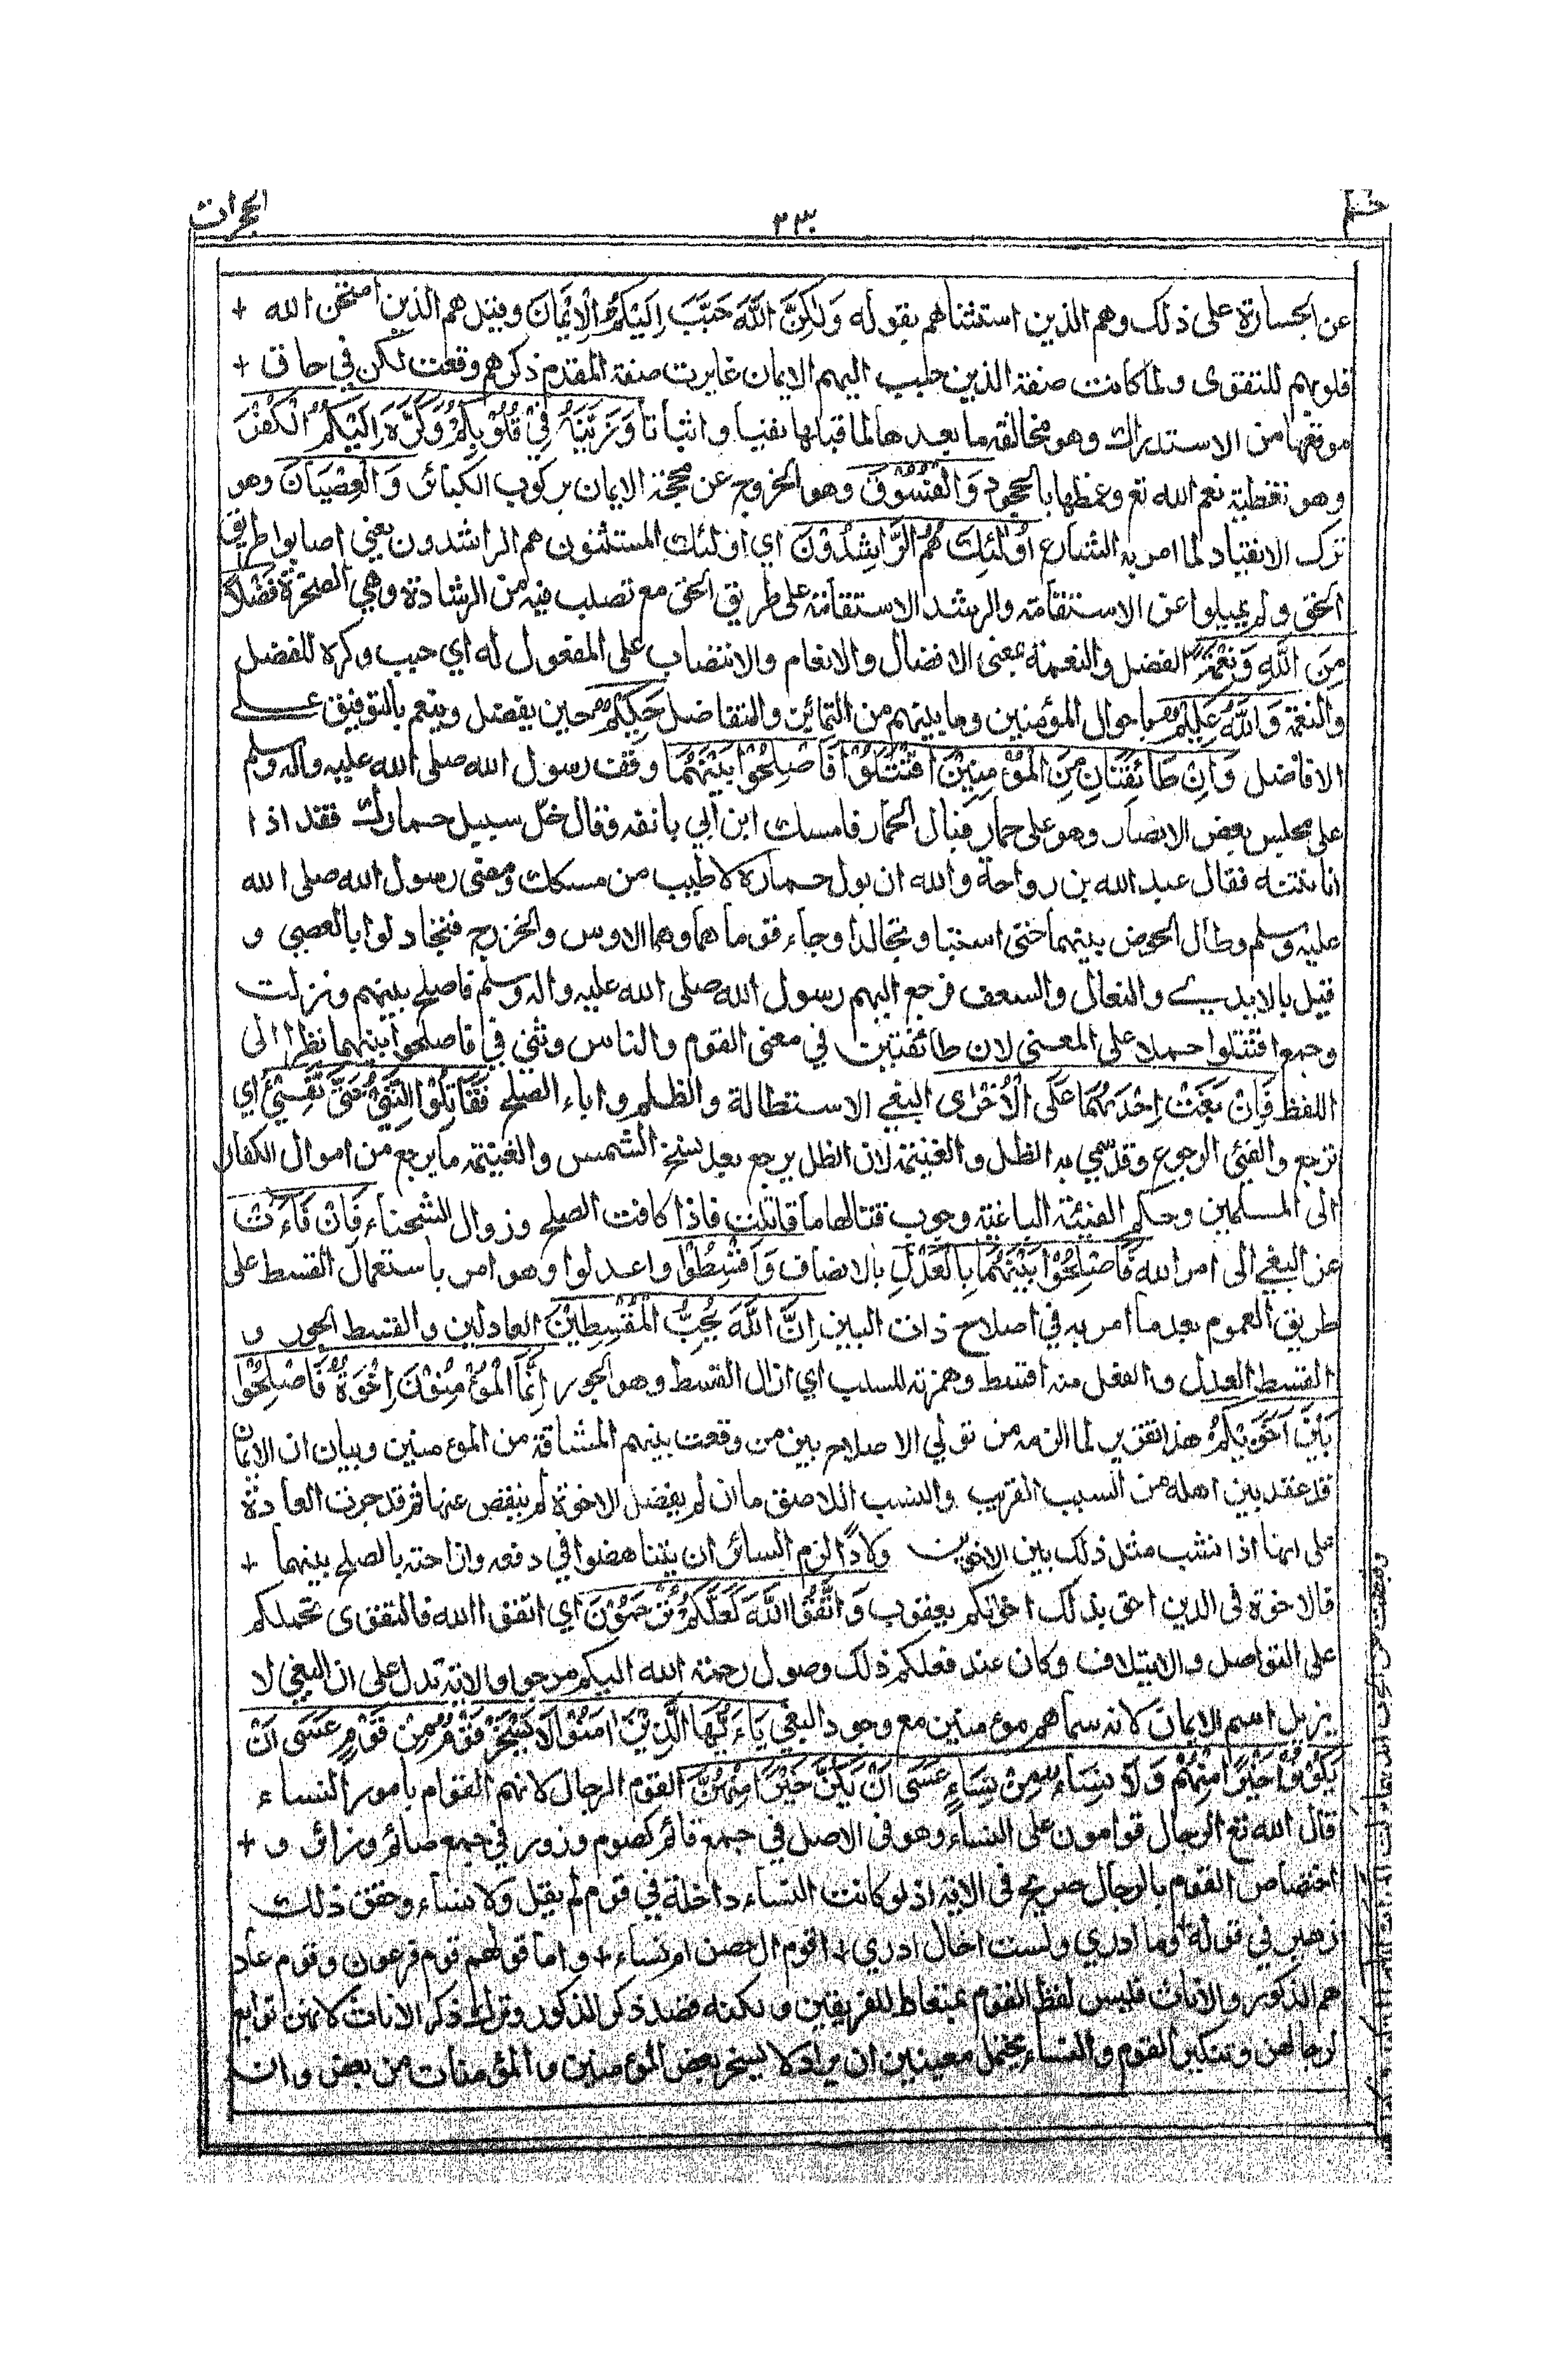 حم
٣٣٠
الحجرات
عن الجسارة على ذلك وهم الذين استثناهم بقوله وَلٰكِنَّ اللّٰهَ حَبَّبَ اِلَيْكُمُ الْاِيْمَانَ وقيل هم الذين امتحن الله +
قلوبهم للتقوى ولما كانت صفة الذين حبب اليهم الايمان غايرت صفة المتقدم ذكرهم وقعت لكن في حاق +
موقعها من الاستدراك وهو مخالفة ما بعدها لما قبلها نفيا واثباتا وَزَيَّنَهٗ فِيْ قُلُوْبِكُمْ وَكَرَّهَ اِلَيْكُمُ الْكُفْرَ
وهو تغطية نعم الله تع وغمطها بالجحود وَالْفُسُوْقَ وهو الخروج عن محجة الايمان بركوب الكبائر وَالْعِصْيَانَ وهو
ترك الانقياد لما امر به الشارع اُولٰئِكَ هُمُ الرَّاشِدُوْنَ اي اولئك المستثنون هم الراشدون يعني اصابوا طريق
الحق ولم يميلوا عن الاستقامة والرشد الاستقامة على طريق الحق مع تصلب فيه من الرشادة وهي الصخرة فَضْلًا
مِنَ اللّٰهِ وَنِعْمَةً الفضل والنعمة بمعنى الافضال والانعام والانتصاب على المفعول له اي حبب وكره للفضل
والنعمة وَاللّٰهُ عَلِيْمٌ باحوال المؤمنين وما بينهم من التمائز والتفاضل حَكِيْمٌ حين يفضل وينعم بالتوفيق على
الافاضل وَاِنْ طَائِفَتَانِ مِنَ الْمُؤْمِنِيْنَ اقْتَتَلُوْا فَاَصْلِحُوْا بَيْنَهُمَا وقف رسول الله صلى الله عليه واله وسلم
على مجلس بعض الانصار وهو على حمار فبال الحمار فامسك ابن ابي بانفه وقال خل سبيل حمارك فقد اذا
انا نتنه فقال عبد الله بن رواحة والله ان بول حماره لاطيب من مسكك ومضى رسول الله صلى الله
عليه وسلم وطال الخوض بينهما حتى استبا وتجالدا وجاء قوماهما وهما الاوس والخزرج فتجادلوا بالعصي و
قيل بالايدي والنعال والسعف فرجع اليهم رسول الله صلى الله عليه واله وسلم فاصلح بينهم ونزلت
وجمع اقتتلوا حملا على المعنى لان طائفتين في معنى القوم والناس وثنى في فاصلحوا بينهما نظرا الى
اللفظ فَاِنْ بَغَتْ اِحْدٰىهُمَا عَلَى الْاُخْرٰى البغي الاستطالة والظلم واباء الصلح فَقَاتِلُوا الَّتِيْ حَتّٰى تَفِيْءَ اي
ترجع والفئ الرجوع وقد سمي به الظل والغنيمة لان الظل يرجع بعد نسخ الشمس والغنيمة ما يرجع من اموال الكفار
الى المسلمين وحكم الفئة الباغية وجوب قتالها ما قاتلت فاذا كافت الصلح وزوال الشحناء فَاِنْ فَاءَتْ
عن البغي الى امر الله فَاَصْلِحُوْا بَيْنَهُمَا بِالْعَدْلِ بالانصاف وَاَقْسِطُوْا واعدلوا وهو امر باستعمال القسط على
طريق العموم بعد ما امر به في اصلاح ذات البين اِنَّ اللّٰهَ يُحِبُّ الْمُقْسِطِيْنَ العادلين والقسط الجور و
القسط العدل والفعل منه اقسط وهمزته للسلب اي ازال القسط وهو الجور اِنَّمَا الْمُؤْمِنُوْنَ اِخْوَةٌ فَاَصْلِحُوْا
بَيْنَ اَخَوَيْكُمْ هذا تقرير لما الزمه من تولي الاصلاح بين من وقعت بينهم المشاقة من المؤمنين وبيان ان الايمان
قد عقد بين اهله من السبب القريب والنسب اللاصق ما ان لم يفضل الاخوة لم ينقص عنها ثم قد جرت العادة
على انها اذا نشب مثل ذلك بين الاخوين ولادًا لزم السائر ان يتناهضوا في دفعه وازاحته بالصلح بينهما +
فالاخوة في الدين احق بذلك اخوتكم يعقوب وَاتَّقُوا اللّٰهَ لَعَلَّكُمْ تُرْحَمُوْنَ اي اتقوا الله فالتقوى تحملكم
على التواصل والايتلاف وكان عند فعلكم ذلك وصول رحمة الله اليكم مرجوا والاية تدل على ان البغي لا
يزيل اسم الايمان لانه سماهم مؤمنين مع وجود البغي يَاءَيُّهَا الَّذِيْنَ اٰمَنُوْا لَا يَسْخَرْ قَوْمٌ مِنْ قَوْمٍ عَسٰى اَنْ
يَكُوْنُوْا خَيْرًا مِنْهُمْ وَلَا نِسَاءٌ مِنْ نِسَاءٍ عَسٰى اَنْ يَكُنَّ خَيْرًا مِنْهُنَّ القوم الرجال لانهم القوام بامور النساء
قال الله تع الرجال قوامون على النساء وهو في الاصل في جمع قائم كصوم وزور في جمع صائم وزائر و +
اختصاص القوم بالرجال صريح في الاية اذ لو كانت النساء داخلة في قوم لم يقل ولا نساء وحقق ذلك
زهير في قوله وما ادري ولست اخال ادري + اقوم ال حصن ام نساء + واما قولهم قوم فرعون وقوم عاد
هم الذكور والاناث فليس لفظ القوم بمتعاط للفريقين ولكنه قصد ذكر الذكور وترك ذكر الاناث لانهن توابع
لرجالهن وتنكير القوم والنساء يحتمل معنيين ان يراد لا يسخر بعض المؤمنين والمؤمنات من بعض وان